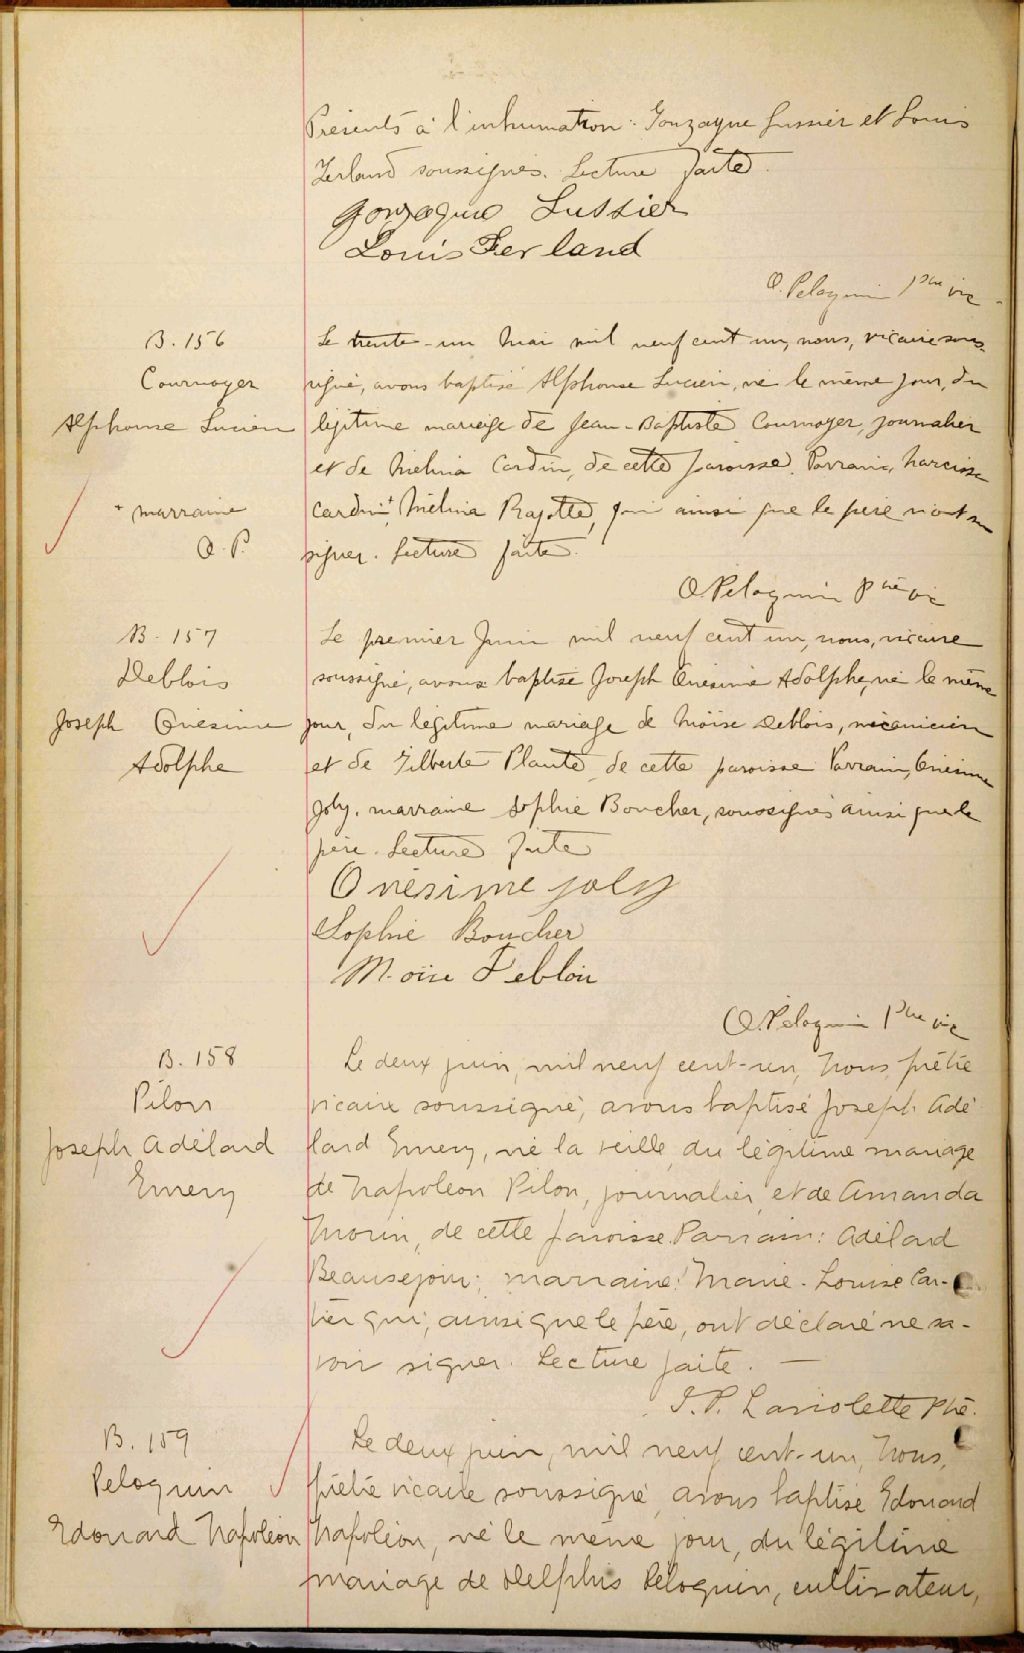 Présents à l'inhumation: Gonzague Lussier et Louis
Ferland soussignés. Lecture faite.
Gonzague Lussier
Louis Ferland
O. Peloquin Ptre vic
B. 156
Cournoyer
Alphonse Lucien
+ marraine
O. P.
Le trente-un Mai mil neuf cent un, nous, vicaire sous-
signé, avons baptisé Alphonse Lucien, né le même jour, du
légitime mariage de Jean-Baptiste Cournoyer, journalier
et de Mélina Cardin, de cette paroisse. Parrain, Narcisse
Cardin, + Mélina Rajotte, qui ainsi que le père n'ont su
signer. Lecture faite.
O. Peloquin Ptre vic
B. 157
Deblois
Joseph Onésime
Adolphe
Le premier Juin mil neuf cent un, nous, vicaire
soussigné, avons baptisé Joseph Onésime Adolphe, né le même
jour, du légitime mariage de Moïse Deblois, mécanicien
et de Gilberte Plante, de cette paroisse. Parrain, Onésime
Joly, marraine Sophie Boucher, soussignés ainsi que le
père. Lecture faite
Onésime Joly
Sophie Boucher
Moïse Deblois
O. Peloquin Ptre vic
B. 158
Pilon
Joseph Adélard
Emery
Le deux juin, mil neuf cent-un, Nous, prêtre
vicaire soussigné, avons baptisé Joseph Adé
lard Emery, né la veille, du légitime mariage
de Napoléon Pilon, journalier, et de Amanda
Morin, de cette paroisse. Parrain: Adélard
Beausejour; marraine: Marie-Louise Car-
tier qui, ainsi que le père, ont déclaré ne sa-
voir signer. Lecture faite. —
J. P. Laviolette Ptre.
B. 159
Peloquin
Edouard Napoléon
Le deux juin, mil neuf cent-un, Nous,
prêtre vicaire soussigné, avons baptisé Edouard
Napoléon, né le même jour, du légitime
mariage de Delphis Péloquin, cultivateur,